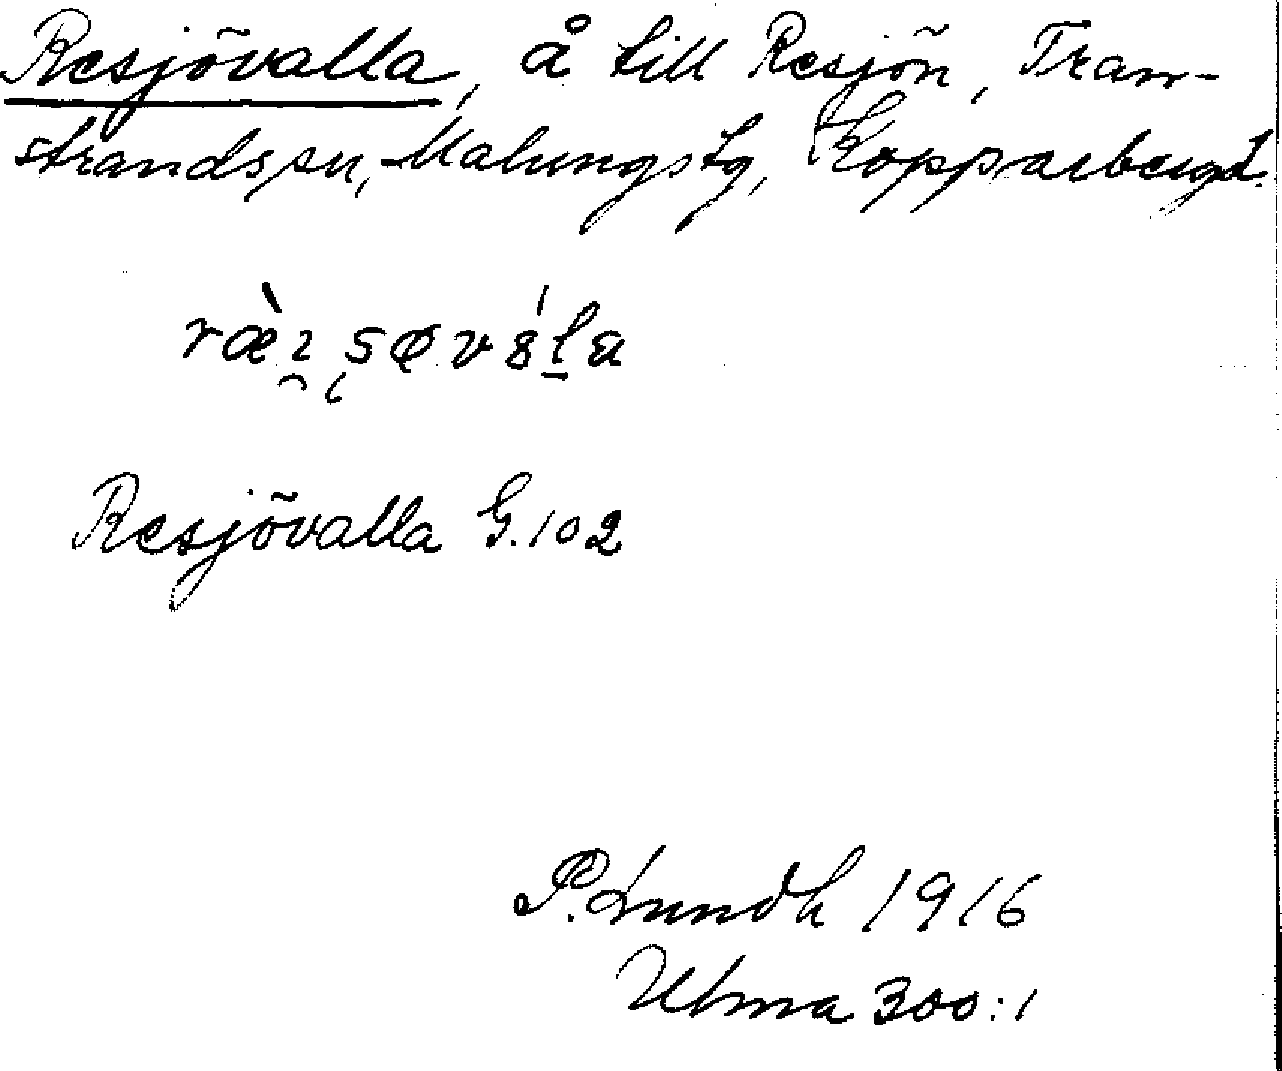 Resjövalla, å till Resjön, Tran-
strands sn, Malungs tg, Kopparbergs l.
Resjövalla G. 102
P. Lundh 1916
Ulma 300:1